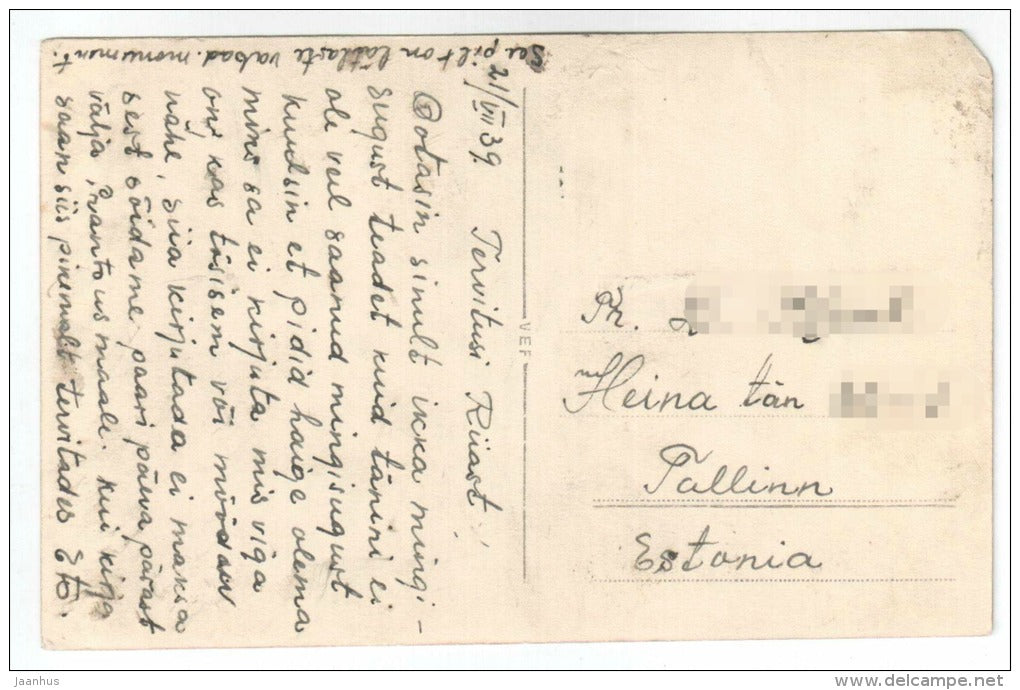 See pilt on lätlaste vabad. monument.
21/VII 39. Tervitusi Riiast!
Ootasin sinult ikka mingi-
sugust teadet kuid tänini ei
ole veil saanud mingisugust
kuulsin et pidid haige olema
mins sa ei kirjuta mis viga
on, kas tõsisem või möödav
nähe, siia kirjutada ei maksa
sest sõidame paari päeva pärast
välja Prantsusmaale. kui kirja
saan siis pikemalt tervitades
VEF
Ph.
Heina tän
Tallinn
Estonia
Jaanhus
www.delcampe.net